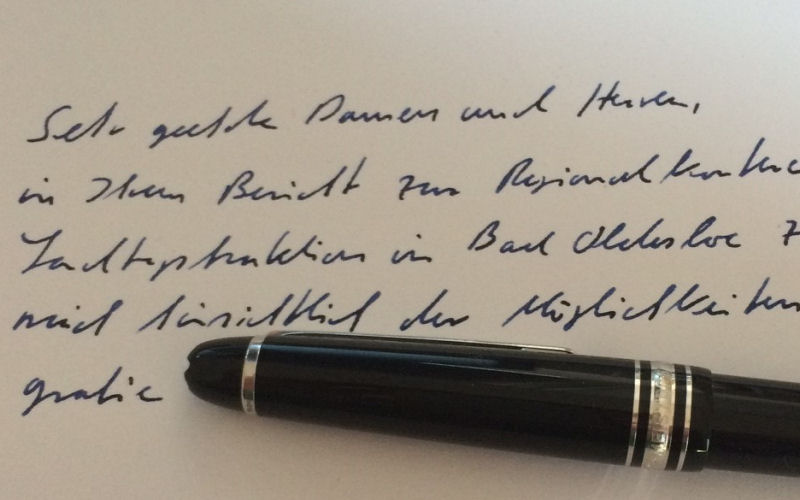 Sehr geehrte Damen und Herren,
in Ihrem Bericht zur Regionalkonferenz
in Bad Oldesloe
mich hinsichtlich der Möglichkeiten
grafie